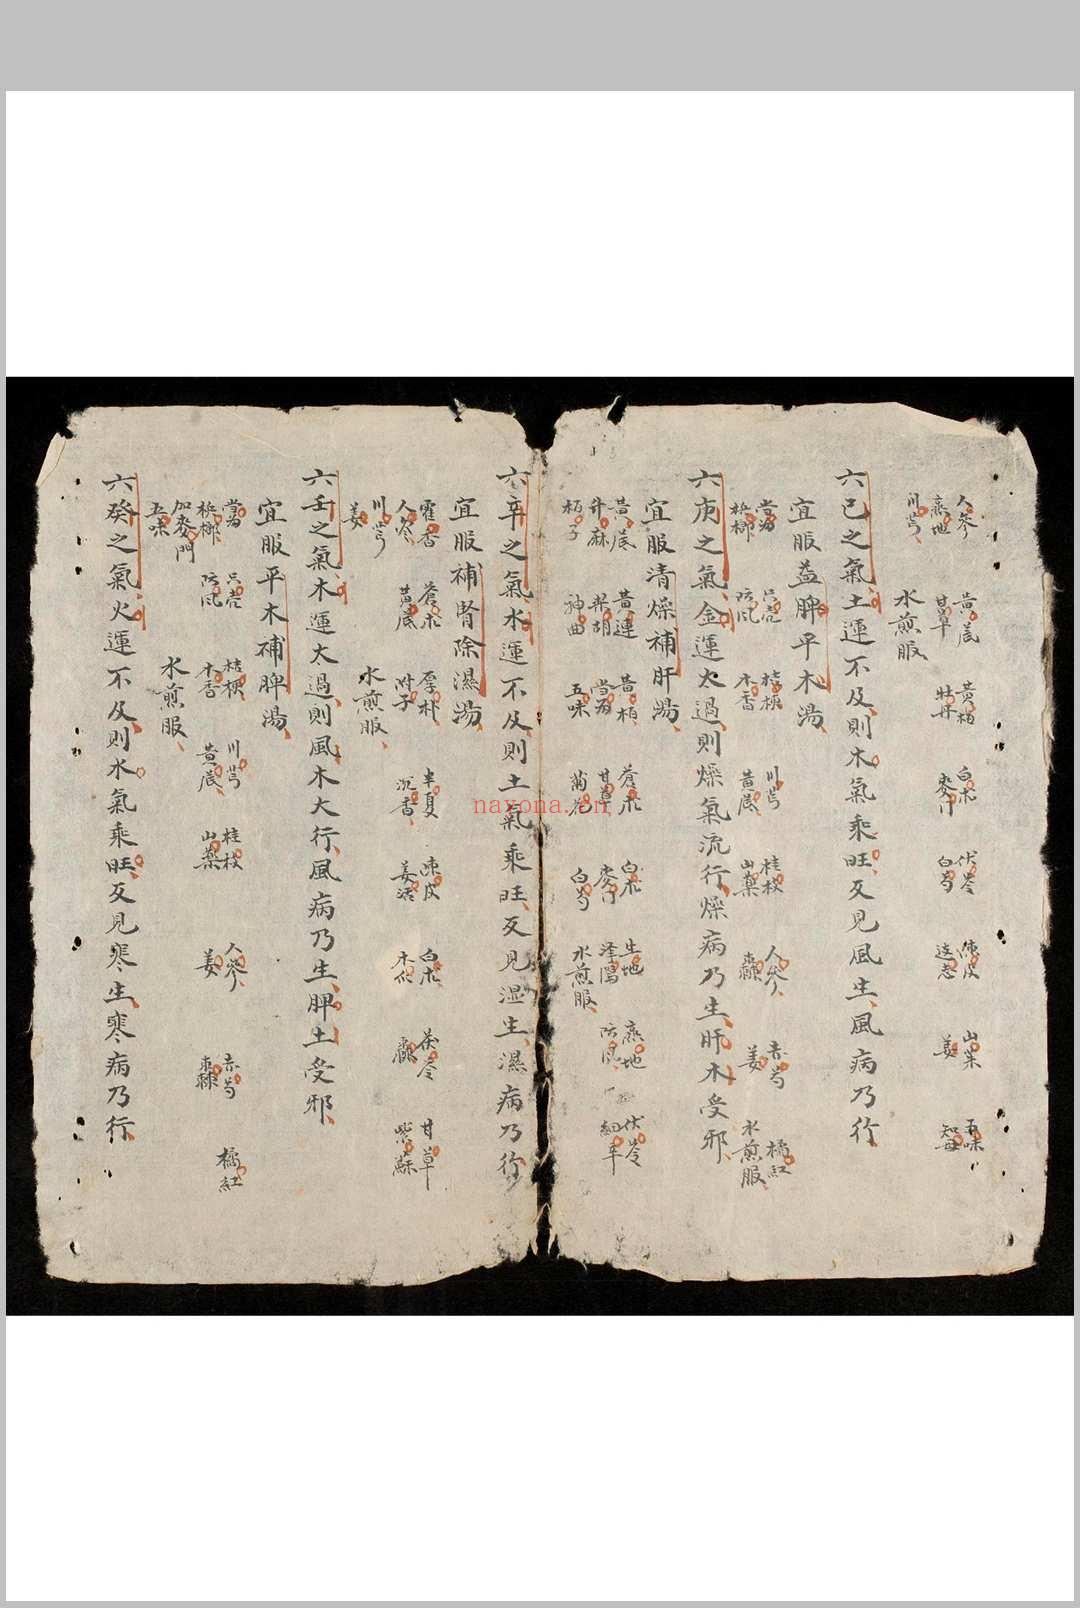 人參 黃茋 黃柏 白朮 伏苓 陳皮 山茱 五味
熟地 甘草 牡丹 麥门 白芍 远志 姜 知母
川芎
水煎服
六己之氣土運不及則木氣乘旺反見風生風病乃行
宜服益脾平木湯
當归 只壳 桔梗 川芎 桂枝 人參 赤芍 橘紅
梹榔 防风 木香 黃茋 山藥 棗 姜 水煎服
六庚之氣金運太過則燥氣流行燥病乃生肝木受邪
宜服清燥補肝湯
黃茋 黃連 黃柏 蒼朮 白朮 生地 熟地 伏苓
升麻 柴胡 當归 甘草 麥门 澤瀉 防风 細辛
栀子 神曲 五味 菊花 白芍 水煎服
六辛之氣水運不及則土氣乘旺反見湿生濕病乃行
宜服補腎除濕湯
霍香 蒼朮 厚朴 半夏 陳皮 白朮 茯苓 甘草
人參 黃茋 附子 沉香 姜活 木瓜 棗 紫蘇
川芎 水煎服
姜
六壬之氣木運太過則風木大行風病乃生脾土受邪
宜服平木補脾湯
當归 只壳 桔梗 川芎 桂枝 人參 赤芍 橘紅
梹榔 防风 木香 黃茋 山藥 姜 棗
加麥門 水煎服
五味
六癸之氣火運不及則水氣乘旺反見寒生寒病乃行
nayona.cn